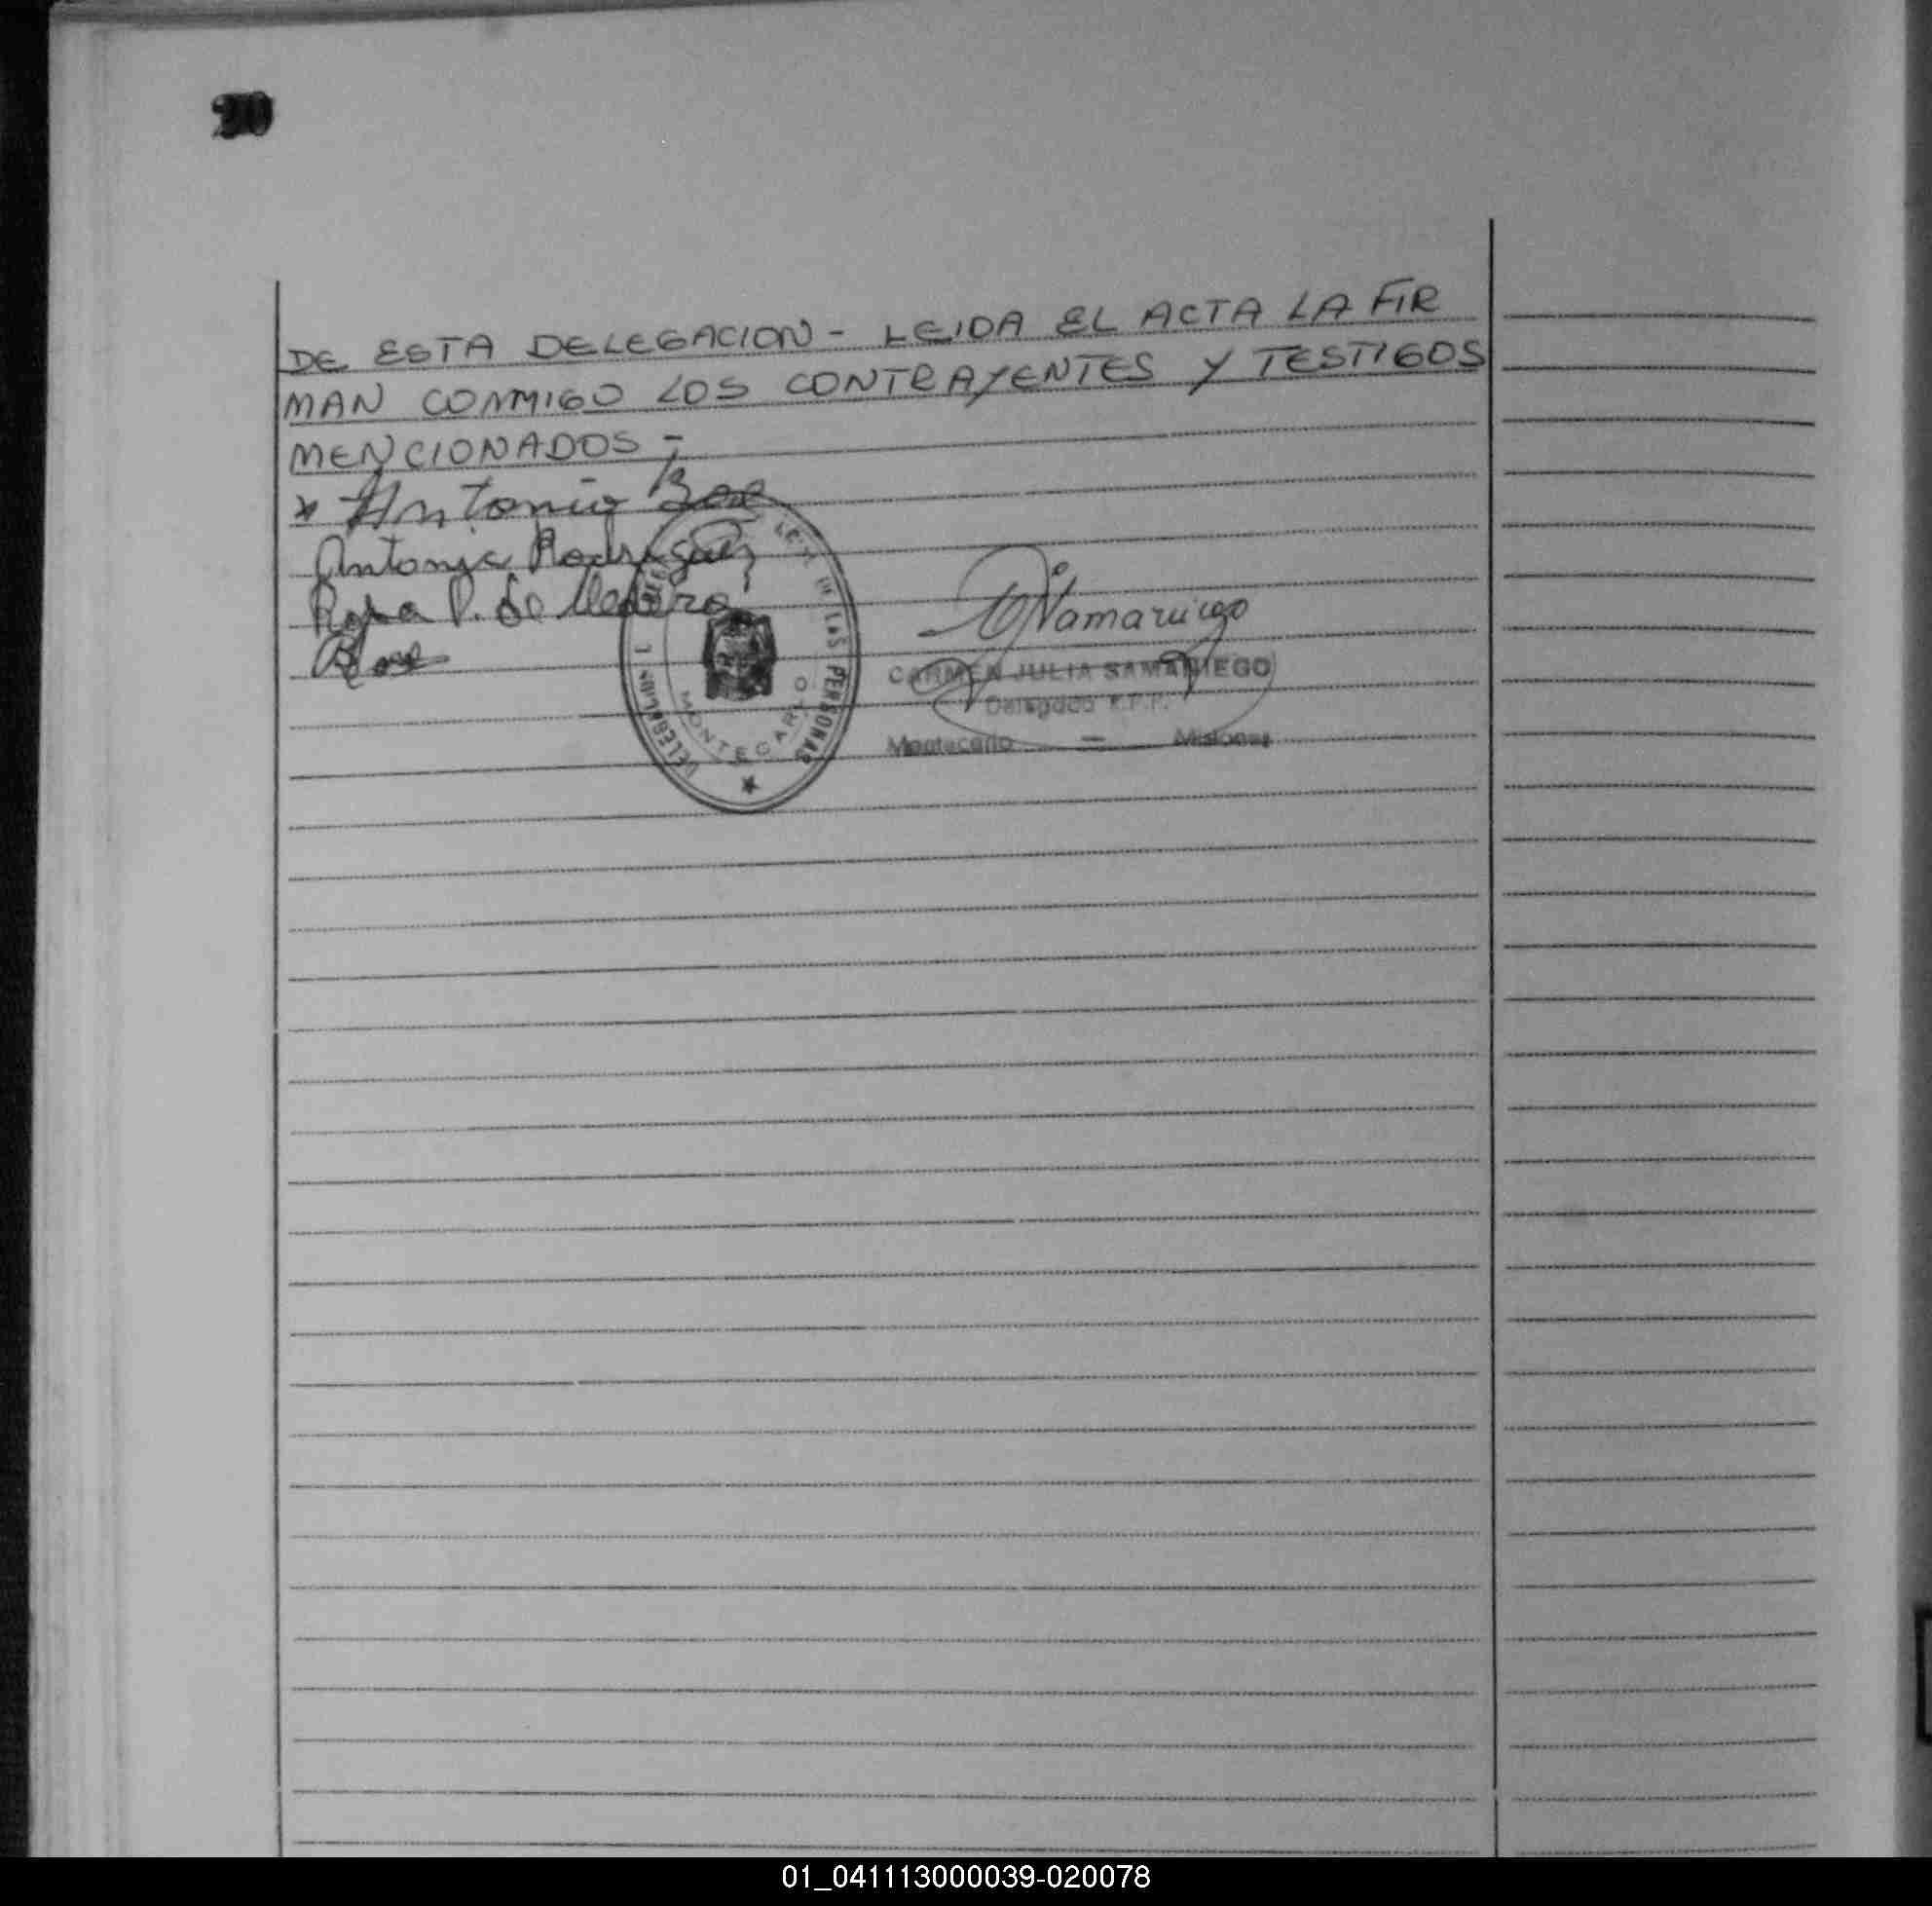 20
DE ESTA DELEGACION - LEIDA EL ACTA LA FIR
MAN CONMIGO LOS CONTRAYENTES Y TESTIGOS
MENCIONADOS -
x Antonio
Antonia Rodriguez
Rosa P. de
LAS PERSONAS
MONTECARLO
CARMEN JULIA SAMANIEGO
Delegado R.P.P.
Montecarlo - Misiones
01_041113000039-020078